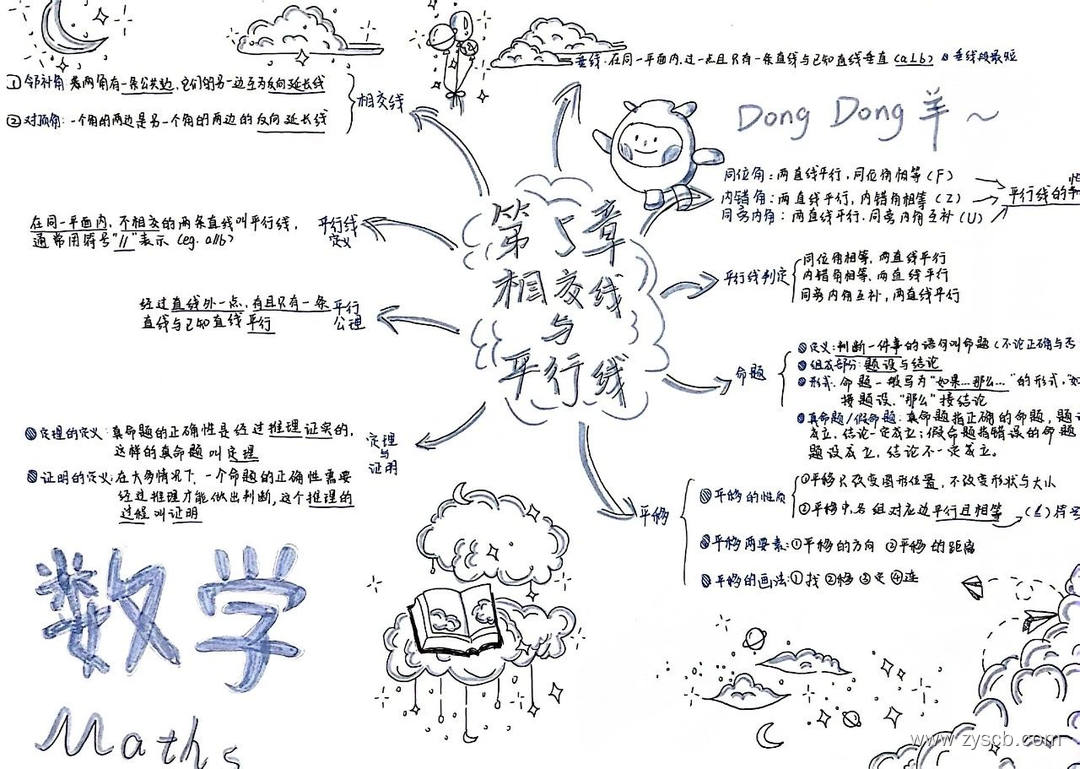 ①邻补角:若两角有一条公共边,它们的另一边互为反向延长线
②对顶角:一个角的两边是另一个角的两边的反向延长线
相交线
垂线:在同一平面内,过一点且只有一条直线与已知直线垂直(a⊥b)
垂线段最短
Dong Dong 羊~
同位角:两直线平行,同位角相等(F)
内错角:两直线平行,内错角相等(Z)
同旁内角:两直线平行,同旁内角互补(U)
平行线的
在同一平面内,不相交的两条直线叫平行线,
通常用符号"//"表示(eg. a//b)
平行线
定义
第5章
相交线
与
平行线
平行线判定
同位角相等,两直线平行
内错角相等,两直线平行
同旁内角互补,两直线平行
经过直线外一点,有且只有一条
直线与已知直线平行
平行
公理
命题
①定义:判断一件事的语句叫命题(不论正确与否
②组成部分:题设与结论
③形式:命题一般写为"如果…那么…"的形式,"如
接题设,"那么"接结论
④真命题/假命题:真命题指正确的命题,题设
成立,结论一定成立;假命题指错误的命题
题设成立,结论不一定成立。
①定理的定义:真命题的正确性是经过推理证实的,
这样的真命题叫定理
②证明的定义:在大多情况下,一个命题的正确性需要
经过推理才能做出判断,这个推理的
过程叫证明
定理
与
证明
平移
①平移的性质
①平移只改变图形位置,不改变形状与大小
②平移中,各组对应边平行且相等
符号
②平移两要素:①平移的方向 ②平移的距离
③平移的画法:①找②移③定④连
数学
Maths
www.zyscb.com